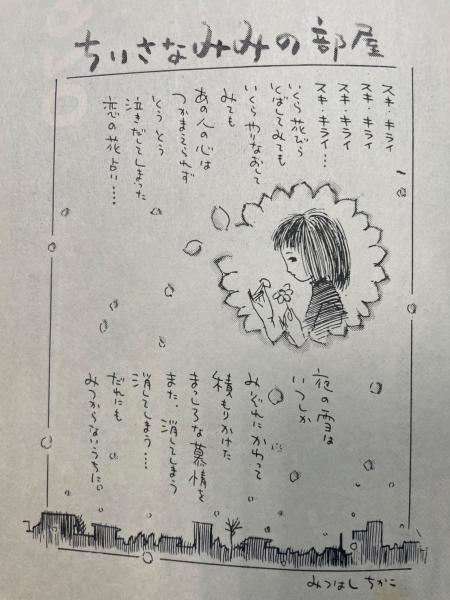 ちいさなみみの部屋
スキ・キライ
スキ・キライ
スキ・キライ
スキ・キライ…
いくら花びら
とばしてみても
いくらやりなおして
みても
あの人の心は
つかまえられず
とうとう
泣きだしてしまった
恋の花占い……
夜の雪は
いつしか
みぞれにかわって
積もりかけた
まっしろな慕情を
また、消してしまう
消してしまう…
だれにも
みつからないうちに
みつはしちかこ